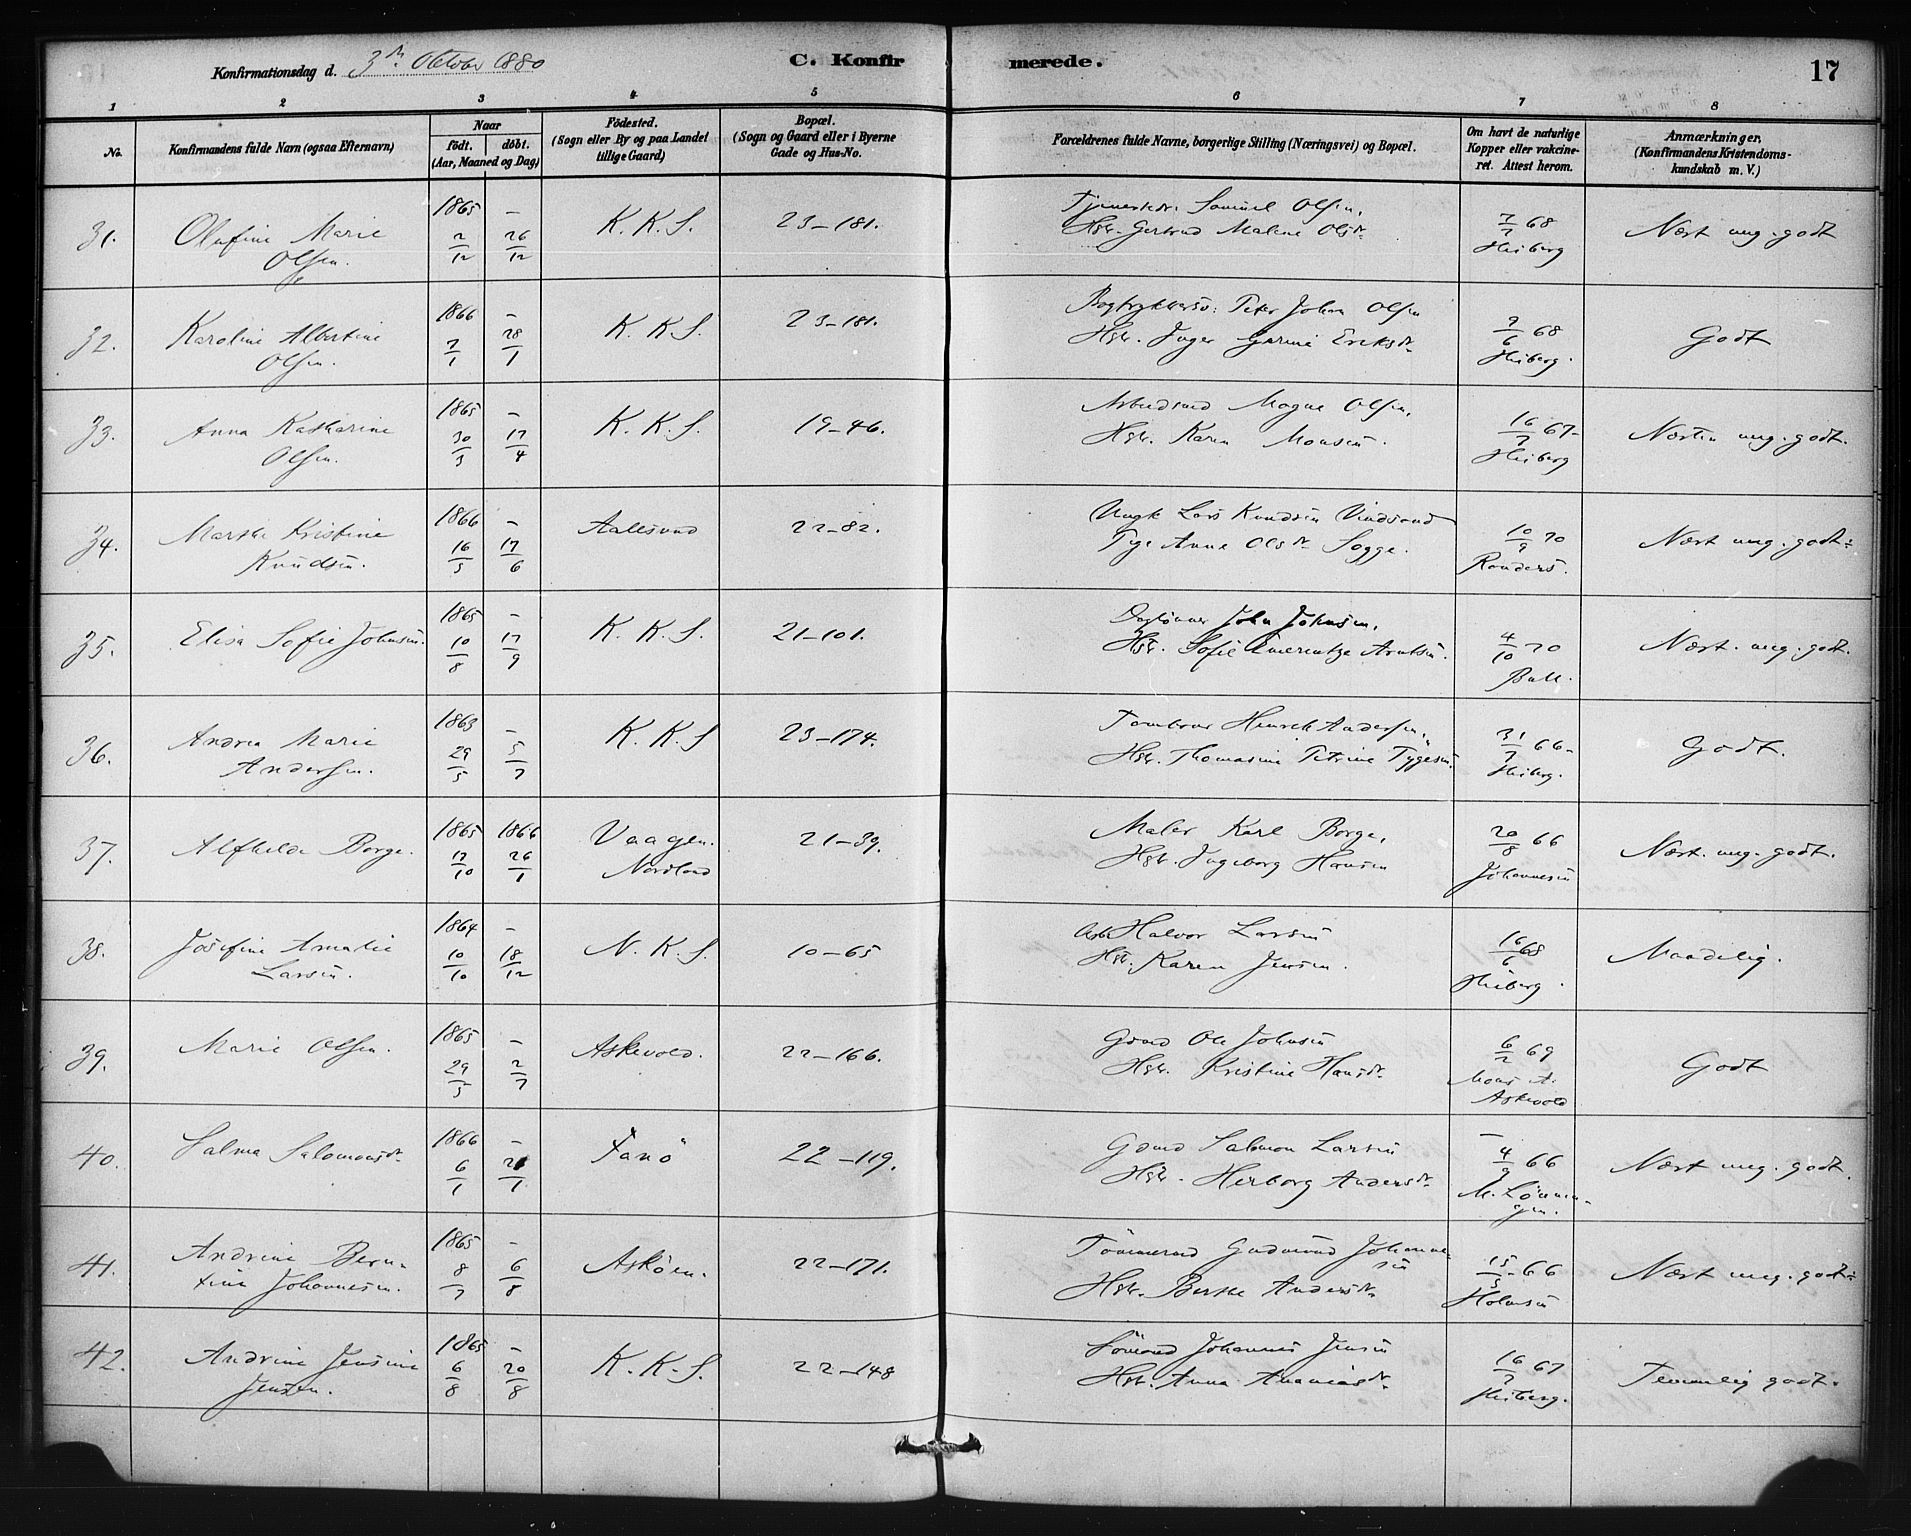 Konfirmationsdag d. 3die Oktober 1880
C. Konfirmerede.
17
1 2 3 4 5 6 7 8
No.
Konfirmandens fulde Navn (ogsaa Efternavn)
Naar
födt. döbt.
(Aar, Maaned og Dag)
Födested.
(Sogn eller By og paa Landet
tillige Gaard)
Bopæl.
(Sogn og Gaard eller i Byerne
Gade og Hus-No.
Forældrenes fulde Navne, borgerlige Stilling (Næringsvei) og Bopæl.
Om havt de naturlige
Kopper eller vakcine-
ret. Attest herom.
Anmærkninger,
(Konfirmandens Kristendoms-
kundskab m. V.)
31. Olufine Marie
Olsen.
1865 –
2/12 26/12
K. K. S.
23–181.
Samuel Olsen,
Hstr. Gertrud Malene Olsdr
7/7 68
Heiberg
Næst mg. godt
32. Karoline Albertine
Olsen.
1866 –
7/1 28/1
K. K. S.
23–181.
Peter Johan Olsen
Hstr. Inger Eriksdr
9/6 68
Heiberg.
Godt
33. Anna Katharine
Olsen.
1865 –
30/3 17/4
K. K. S.
19–46.
Arbeidsmd Mogne Olsen,
Hstr. Karen Monsen.
16/7 67–
Heiberg
Næsten mg. godt.
34. Marthe Kristine
Knudsen.
1866 –
16/5 17/6
Aalesund
22–82.
Ungk Lars Knudsen Vindsand
Pige Anna Olsdr Sogge.
10/9 70
Randers.
Næst mg. godt÷
35. Elisa Sofie Johnsen.
1865 –
10/8 17/9
K. K. S.
21–101.
Daglönner John Johnsen,
Hstr. Sofie Emerentze Arntsen.
4/10 70
Bull.
Næst. mg. godt.
36. Andrea Marie
Andersen.
1863 –
29/5 5/7
K. K. S
23–174.
Henrik Andersen,
Hstr. Thomasine Petrine Tygesen.
31/7 66–
Heiberg.
Godt.
37. Alfhilda Borge.
1865 1866
17/10 26/1
Vaagen.
Nordland
21–39.
Maler Karl Borge,
Hstr. Ingeborg Hansen
20/8 66
Johannesen
Næst. mg. godt.
38. Josefine Amalie
Larsen.
1864 –
10/10 18/12
N. K. S.
10–65
Arb Halvor Larsen
Hstr. Karen Jensen.
16/6 68
Heiberg.
Maadelig.
39. Marie Olsen.
1865 –
29/5 2/7
Askevold.
22–166.
Gdmd Ole Johnsen
Hstr. Kristine Hansdr
6/2 69
Mons A.
Askevold
Godt
40. Salma Salomonsdr
1866 –
6/1 21/1
Fanö
22–119.
Gdmd Salmon Larsen
Hstr. Herborg Andersdr
–
4/9 66
M. Lönnin-
gen.
Næst mg. godt.
41. Andrine Bern-
tine Johannesen.
1865 –
8/7 6/8
Asköen.
22–171.
Tömmermd Gudmund Johanne-
sen
Hstr. Berthe Andersdr
15/5 66
Holmsen
Næst mg. godt÷
42. Andrine Jensine
Jensen.
1865 –
6/8 20/8
K. K. S.
22–148
Sömand Johannes Jensen
Hstr. Anna Ananiasdr
16/7 67
Heiberg.
Temmelig godt.